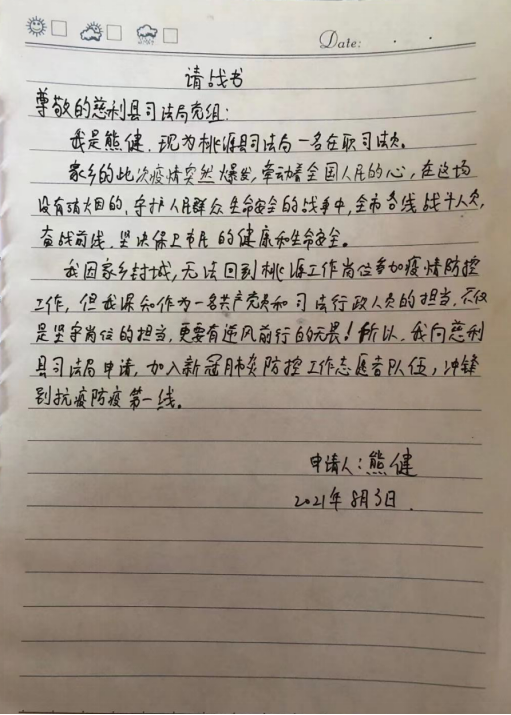 Date: . .
请战书
尊敬的慈利县司法局党组:
我是熊健,现为桃源县司法局一名在职司法员。
家乡的此次疫情突然爆发,牵动着全国人民的心,在这场
没有硝烟的、守护人民群众生命安全的战事中,全市各线战斗人员,
奋战前线,坚决保卫市民的健康和生命安全。
我因家乡封城,无法回到桃源工作岗位参加疫情防控
工作,但我深知作为一名共产党员和司法行政人员的担当,不仅
是坚守岗位的担当,更要有逆风前行的无畏!所以,我向慈利
县司法局申请,加入新冠肺炎防控工作志愿者队伍,冲锋
到抗疫防疫第一线。
申请人:熊健
2021年8月3日.